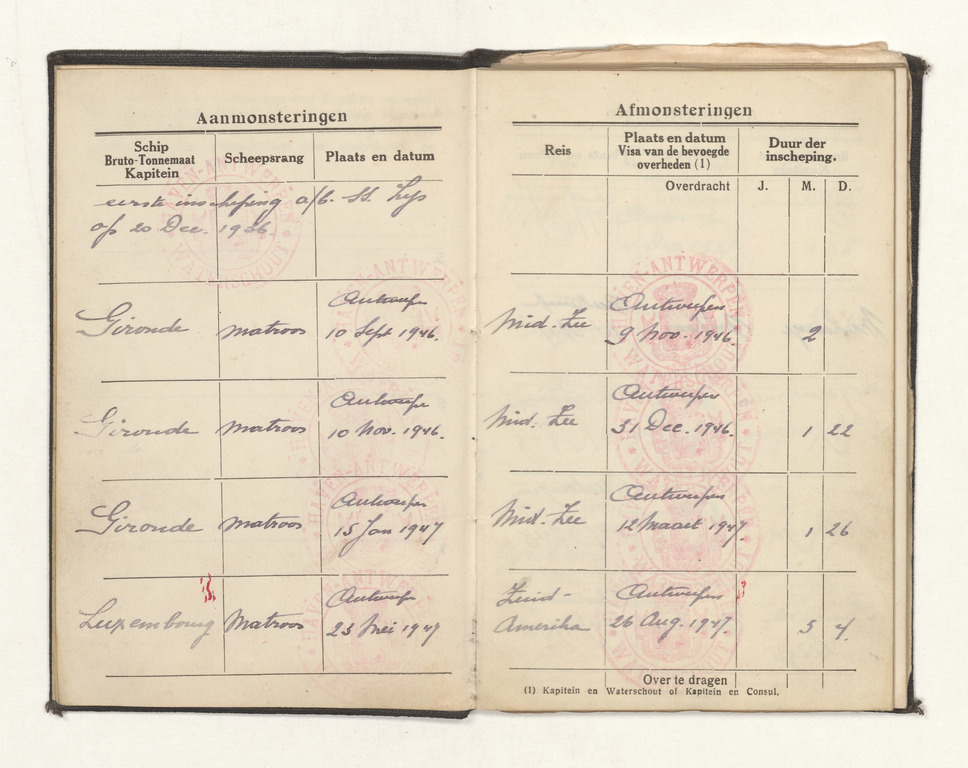 Aanmonsteringen
Schip
Bruto-Tonnemaat
Kapitein
Scheepsrang
Plaats en datum
eerste inscheping a/b. ss. Lys
op 20 Dec. 1936.
Gironde
matroos
Antwerpen
10 Sept 1946.
Gironde
matroos
Antwerpen
10 Nov. 1946.
Gironde
matroos
Antwerpen
15 Jan 1947
Luxembourg
Matroos
Antwerpen
23 Mei 1947
Afmonsteringen
Reis
Plaats en datum
Visa van de bevoegde
overheden (1)
Duur der
inscheping.
Overdracht
J.
M.
D.
Mid. Zee
Antwerpen
9 Nov. 1946.
2
Mid. Zee
Antwerpen
31 Dec. 1946.
1 22
Mid. Zee
Antwerpen
12 Maart 1947.
1 26
Zuid-
Amerika
Antwerpen
26 Aug. 1947.
3 4.
Over te dragen
(1) Kapitein en Waterschout of Kapitein en Consul.
HAVEN-ANTWERPEN
WATERSCHOUT